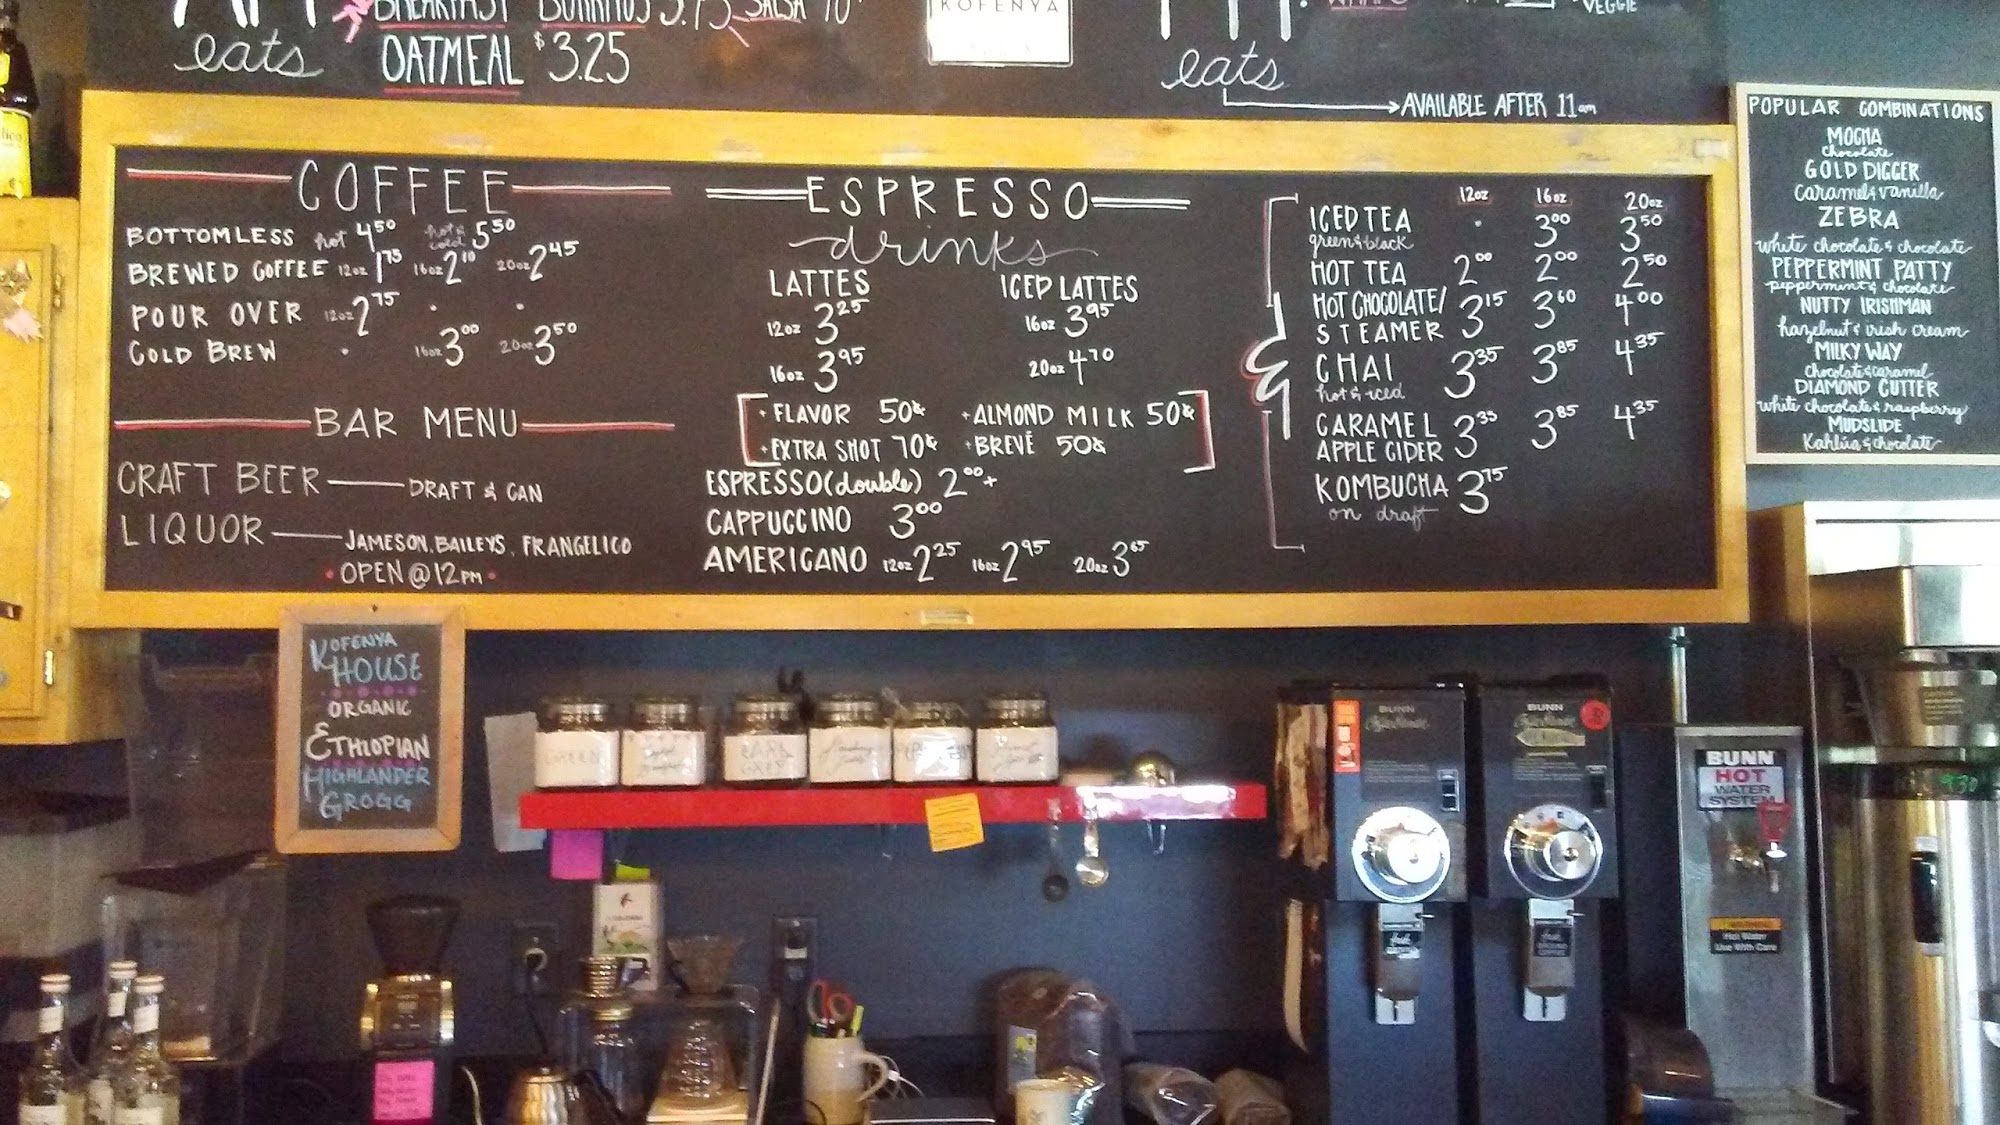 BREAKFAST BURRITOS 3.75 SALSA 70¢
eats
OATMEAL $3.25
KOFENYA
VEGGIE
eats
AVAILABLE AFTER 11am
COFFEE
BOTTOMLESS hot 4.50 hot & cold 5.50
BREWED COFFEE 12oz 1.75 16oz 2.10 20oz 2.45
POUR OVER 12oz 2.75 · ·
COLD BREW · 16oz 3.00 20oz 3.50
BAR MENU
CRAFT BEER — DRAFT & CAN
LIQUOR — JAMESON, BAILEYS, FRANGELICO
• OPEN @ 12PM •
ESPRESSO
drinks
LATTES
12oz 3.25
16oz 3.95
ICED LATTES
16oz 3.95
20oz 4.70
+ FLAVOR 50¢ + ALMOND MILK 50¢
+ EXTRA SHOT 70¢ + BREVÉ 50¢
ESPRESSO (double) 2.00+
CAPPUCCINO 3.00
AMERICANO 12oz 2.25 16oz 2.95 20oz 3.65
&
12oz 16oz 20oz
ICED TEA · 3.00 3.50
green & black
HOT TEA 2.00 2.00 2.50
HOT CHOCOLATE/
STEAMER 3.15 3.60 4.00
CHAI 3.35 3.85 4.35
hot & iced
CARAMEL
APPLE CIDER 3.35 3.85 4.35
KOMBUCHA 3.75
on draft
POPULAR COMBINATIONS
MOCHA
chocolate
GOLD DIGGER
caramel & vanilla
ZEBRA
white chocolate & chocolate
PEPPERMINT PATTY
peppermint & chocolate
NUTTY IRISHMAN
hazelnut & irish cream
MILKY WAY
chocolate & caramel
DIAMOND CUTTER
white chocolate & raspberry
MUDSLIDE
Kahlúa & chocolate
KOFENYA
HOUSE
ORGANIC
ETHIOPIAN
HIGHLANDER
GROGG
GREEN
EARL
GREY
BUNN
BUNN
BUNN
HOT
WATER
SYSTEM
Hot Water
Use With Care